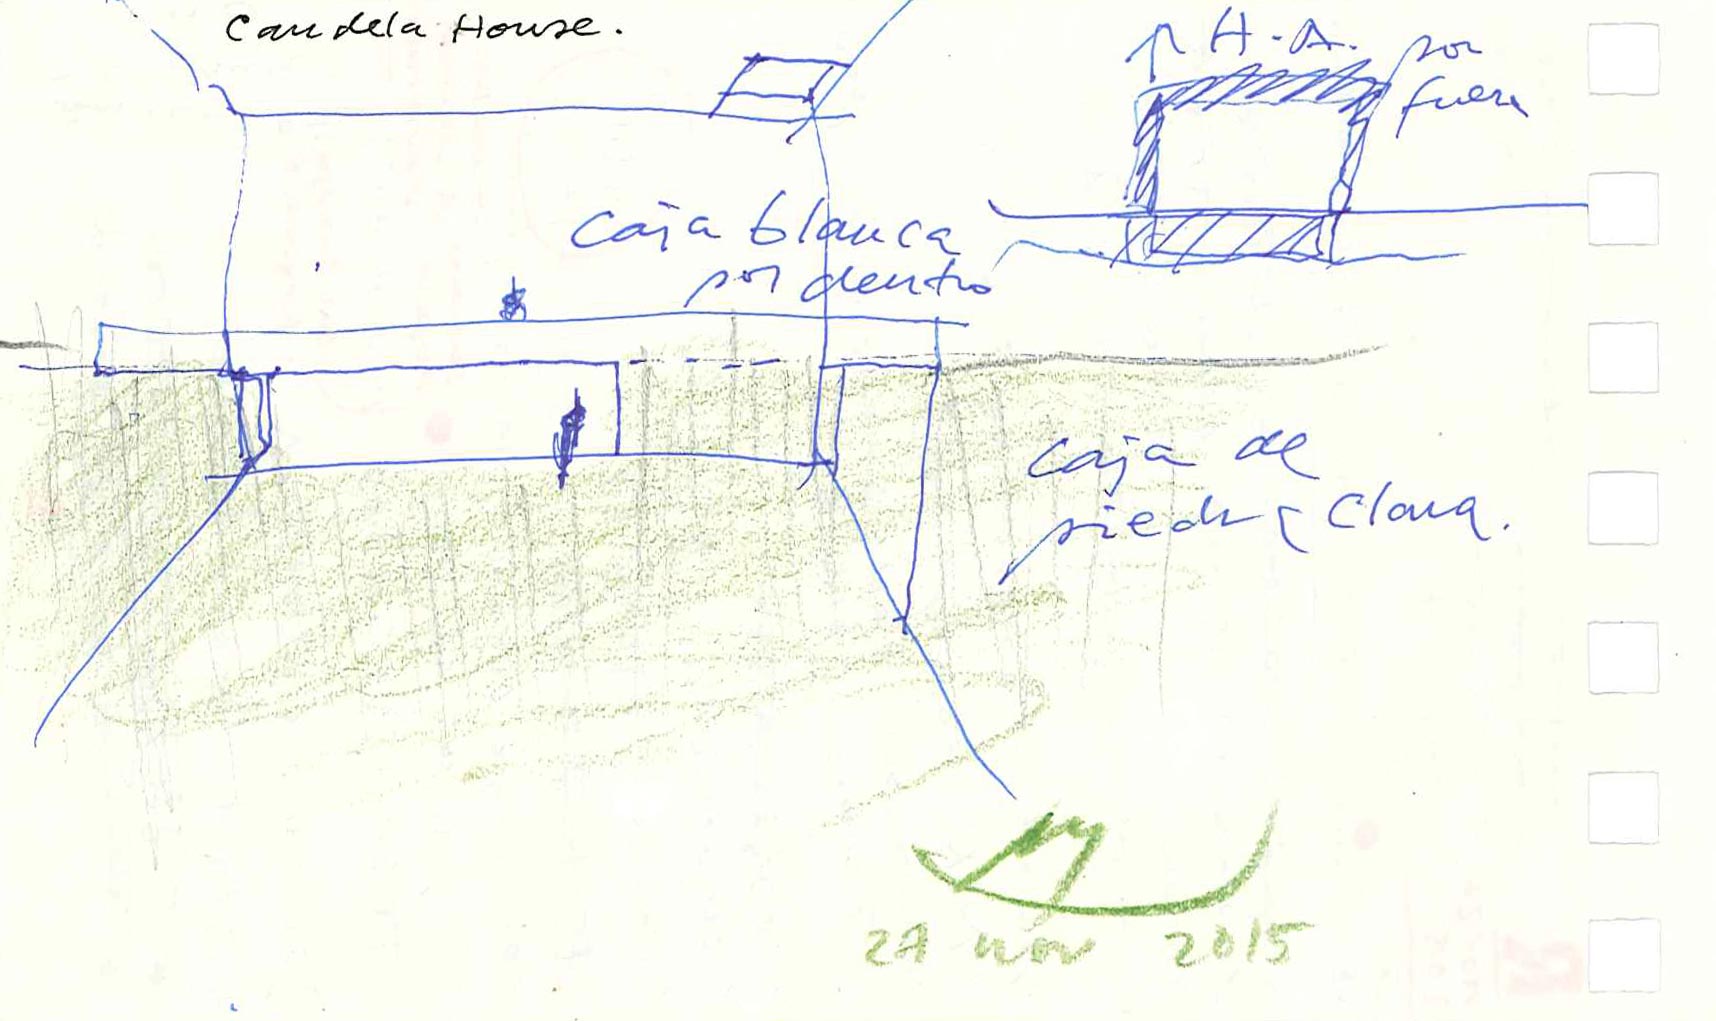 Candela House.
H.A. por
fuera
caja blanca
por dentro
caja de
piedra clara.
27 nov 2015